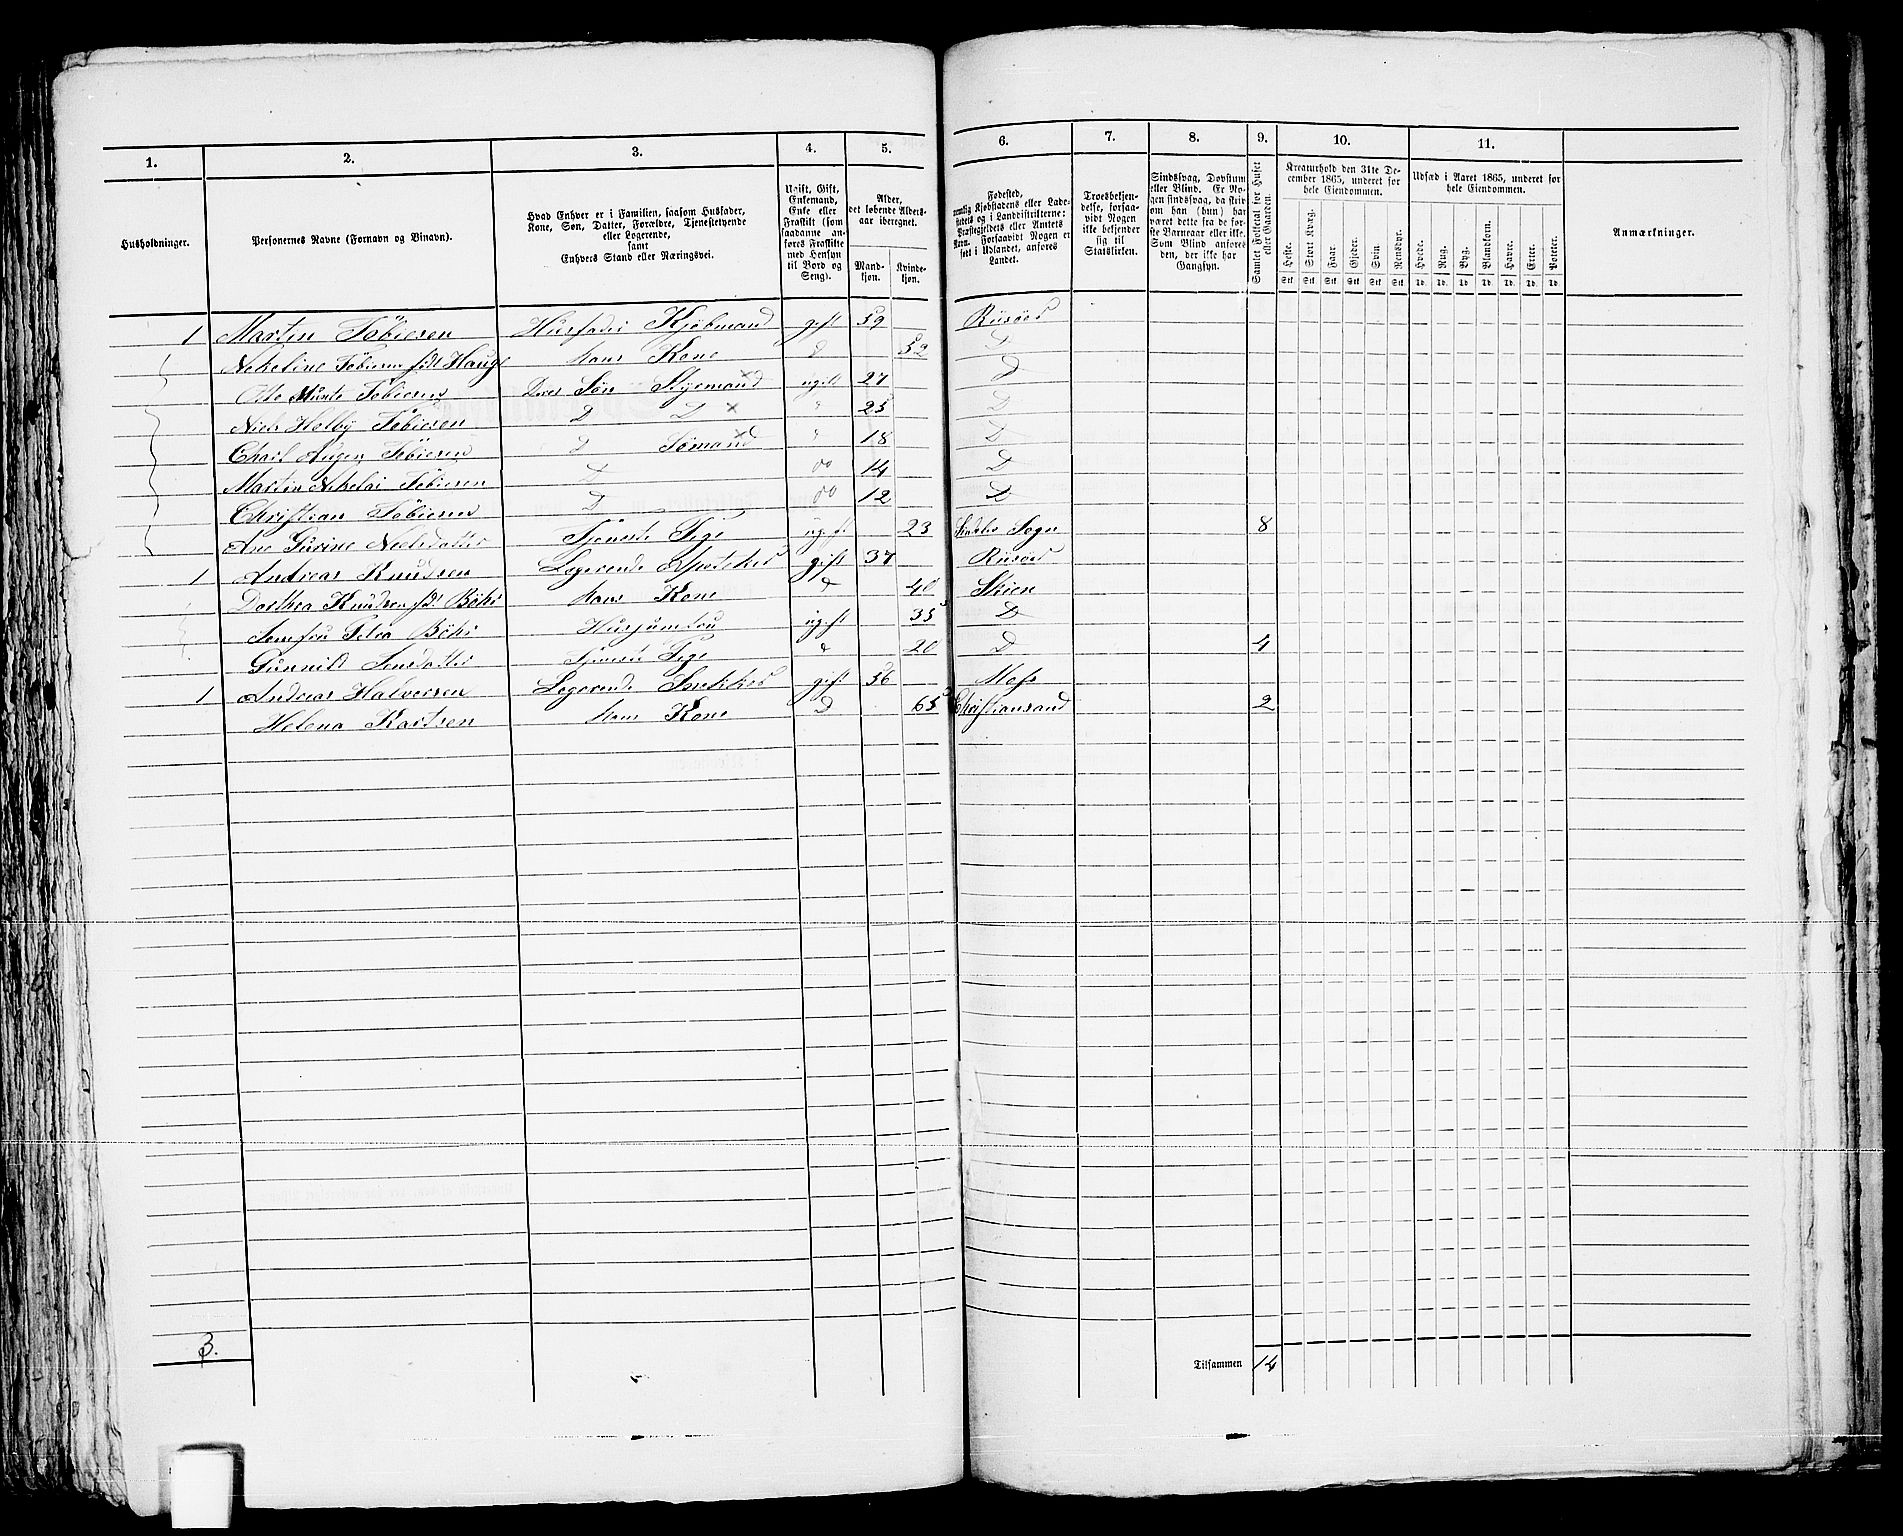 1. 2. 3. 4. 5. 6. 7. 8. 9. 10. 11.
Husholdninger.
Personernes Navne (Fornavn og Binavn).
Hvad Enhver er i Familien, saasom Husfader, Kone, Søn, Datter, Forældre, Tjenestetyende eller Logerende, samt Enhvers Stand eller Næringsvei.
Ugift, Gift, Enkemand, Enke eller Fraskilt (som saadanne anføres Fraskilte med Hensyn til Bord og Seng).
Alder, det løbende Aldersaar iberegnet.
Mandkjøn. Kvindekjøn.
Fødested, nemlig Kjøbstadens eller Ladestedets og i Landdistrikterne: Præstegjeldets eller Amtets Navn. Forsaavidt Nogen er født i Udlandet, anføres Landet.
Troesbekjendelse, forsaavidt Nogen ikke bekjender sig til Statskirken.
Sindssvag, Døvstum eller Blind. Er Nogen sindssvag, da om han (hun) har været dette fra de første Barneaar eller ikke. Som Blind anføres den, der ikke har Gangsyn.
Samlet Folketal for Huset eller Gaarden.
Kreaturhold den 31te December 1865, underet for hele Eiendommen.
Heste. Stort Kvæg. Faar. Gjeder. Svin. Rensdyr.
Stk Stk Stk Stk Stk Stk
Udsæd i Aaret 1865, underet for hele Eiendommen.
Hvede. Rug. Byg. Blandkorn. Havre. Erter. Poteter.
Td. Td. Td. Td. Td. Td. Td.
Anmærkninger.
1 Martin Tobiesen Husfader Kjøbmand gift 59 Riisøer
Tobiesen Hauge hans Kone D 52 D
Tobiesen Deres Søn Styrmand ugift 27 D
Niels Holby Tobiesen D D × " 25 D
Tobiesen D Sømand " 18 D
Martin Nikolai Tobiesen D 14 D
Christian Tobiesen D 12 D
Ane Gurine Neelsdatter Tjeneste Pige ugift 23 Sogn 8
1 Andreas Knudsen Logerende Apoteker gift 37 Riisøer
Dorthea Knudsen hans Kone D 40 Skien
Petra ugift 35 D
Gunnild Jensdatter Tjeneste Pige D 20 D 4
1 Andreas Halvorsen Logerende Snekker gift 56 Moss
Helena Karlsen hans Kone D 65 Christiansand 2
3.
Tilsammen 14